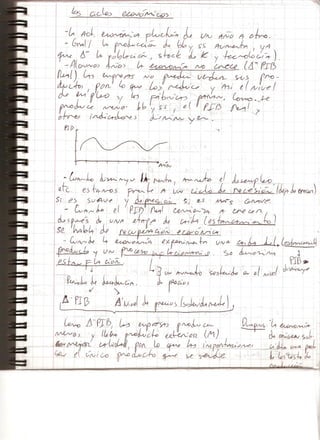 los ciclos económicos
- La act. económica fluctúa de un año a otro.
- Gral/ la producción de bb y ss aumenta, ya
que Δ la población, stock de K y tecnología)
- Algunos años la economía no crece (Δ PIB
Real) las empresas no pueden vender sus pro-
ductos, por lo que los reduce y así el nivel
de empleo y las fábricas paran. Como se
produce menos bb y ss, el PIB Real,
otros indicadores disminuyen.
PIB
Año
- Cuando disminuye la renta, aumenta el desempleo,
etc. estamos frente a un ciclo de recesión (dejo de crecer)
si es suave y depresión si es más grave
- Cuando el PIB Real comienza a crecer,
después de una etapa de caída (estancamiento)
se habla de recuperación económica.
- Cuando la economía experimenta una caída del (estancamiento)
producto y un proceso inflacionario se denomina
estanflación
PIB
disminuye
un aumento sostenido en el nivel
de precios
Periodo de desaceleración.
Δ PIB
Δ nivel de precios (sostenidamente)
Como Δ PIB, las empresas producen
menos, y llega producto exterior (M)
mayor calidad, por lo que las importaciones
ser el único producto que se vende
Después la economía